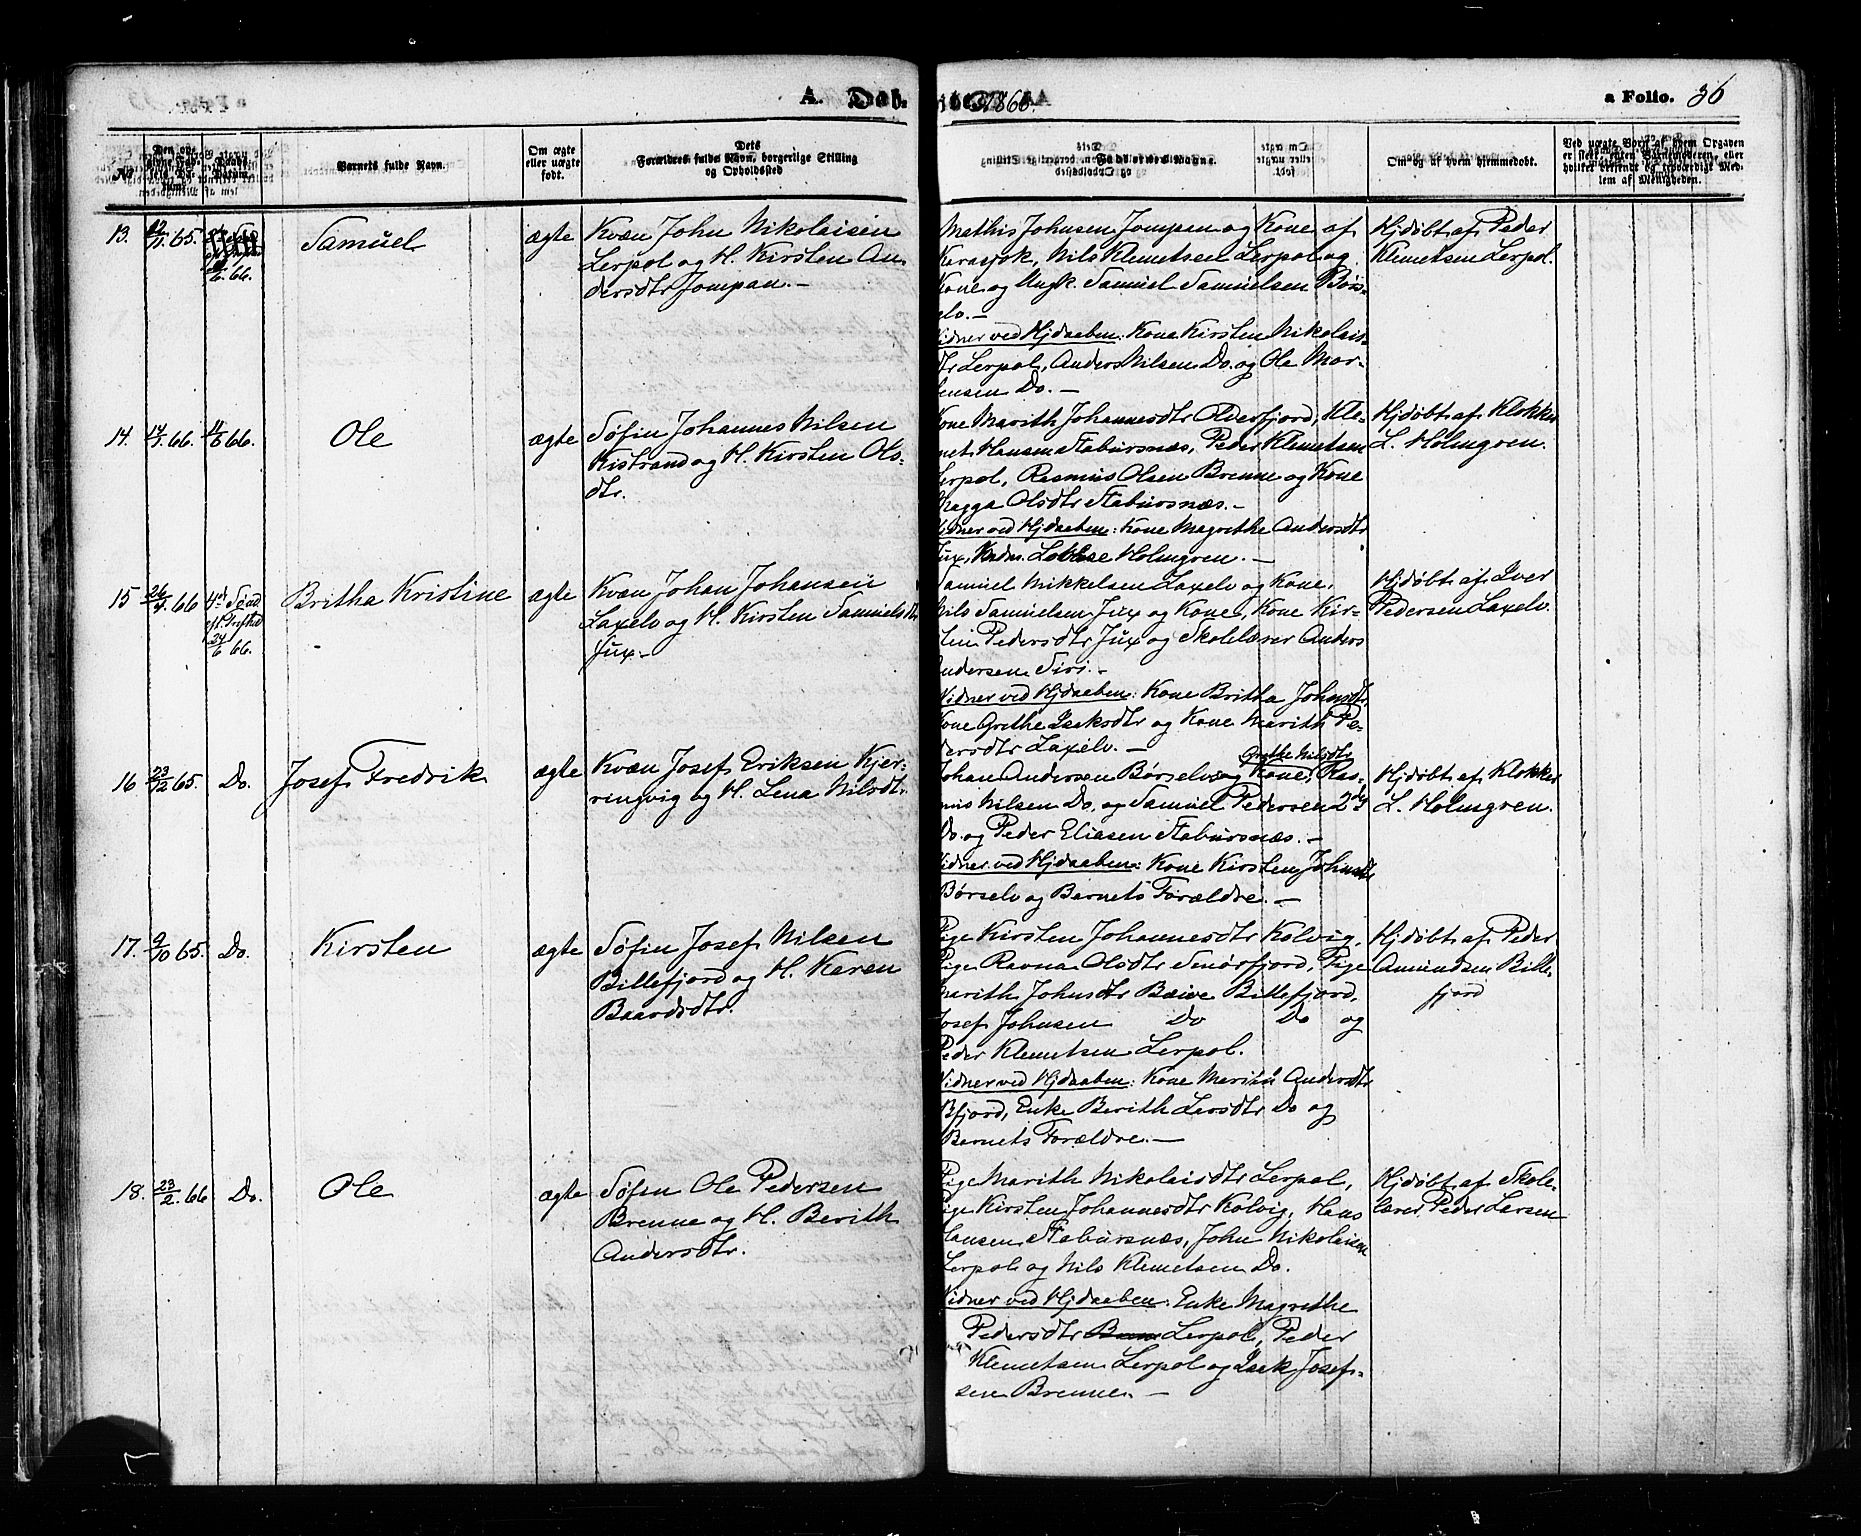 A. Døb. 1866. a Folio. 36
No
Barnets fulde Navn.
Om ægte eller uægte født.
Dets Forældres fulde Navn, borgerlige Stilling og Opholdssted
Faddernes Navne.
Om og af hvem hjemmedøbt.
13. 65. Samuel ægte Kvæn John Nikolaisen
Lerpol og H. Kirsten An-
dersdtr Jompan.-
Mathis Johnsen Jompan og Kone af
Karasjok, Nils Klemetsen Lerpol og
Kone og Ungk. Samuel Samuelsen Børs-
elv.-
Vidner ved Hjdaaben: Kone Kirsten Nikolais-
dtr Lerpol, Anders Nilsen Do. og Ole Mor-
tensen Do.-
Hjdøbt af Peder
Klemetsen Lerpol.
14. 66. 66. Ole ægte Søfin Johannes Nilsen
Kistrand og H. Kirsten Ols-
dtr.
Kone Marith Johannesdtr Olderfjord, Kle-
met Hansen Stabursnæs, Peder Klemetsen
Lerpol, Rasmus Olsen Brenne og Kone
Ragga Olsdtr Stabursnæs.-
Vidner ved Hjdaaben: Kone Magrethe Andersdtr
Jux, Madm. Holmgren.-
Hjdøbt af Klokker
L. Holmgren.
15 66 4de Sønd.
ef. Trefold.
24/6 66.
Britha Kristine ægte Kvæn Johan Johansen
Laxelv og H. Kirsten Samuelsdtr
Jux.-
Samuel Mikkelsen Laxelv og Kone,
Nils Samuelsen Jux og Kone, Kone Kir-
sten Pedersdtr Jux og Skolelærer Anders
Andersen Siri.-
Vidner ved Hjdaaben: Kone Britha Johnsdtr,
Kone Grethe Isaksdtr og Kone Marith Pe-
dersdtr Laxelv.-
Hjdøbt af Iver
Pedersen Laxelv.
16 23/12 65. Do. Josef Fredrik ægte Kvæn Josef Eriksen Kjer-
ringvig og H. Lena Nilsdtr.
Grethe Nilsdtr
Johan Andersen Børselv og Kone, Ras-
mus Nilsen Do. og Samuel Pedersen 2den
Do. og Peder Eliasen Stabursnæs.-
Vidner ved Hjdaaben: Kone Kirsten Johnsdtr
Børselv og Barnets Forældre.-
Hjdøbt af Klokker
L. Holmgren.
17. 9/10 65. Do. Kirsten ægte Søfin Josef Nilsen
Billefjord og H. Karen
Baardsdtr.
Pige Kirsten Johannesdtr Kolvig,
Pige Ravna Olsdtr Smørfjord, Pige
Marith Johnsdtr Bæive Billefjord,
Josef Johnsen Do Do og
Peder Klemetsen Lerpol.
Vidner ved Hjdaaben: Kone Marith Andersdtr
Bfjord, Enke Berith Larsdtr Do og
Barnets Forældre.-
Hjdøbt af Peder
Amundsen Bille-
fjord
18. 23/2 66 Do. Ole ægte Søfin Ole Pedersen
Brenne og H. Berith
Andersdtr.
Pige Marith Nikolaisdtr Lerpol,
Pige Kirsten Johannesdtr Kolvig, Hans
Hansen Stabursnæs, John Nikolaisen
Lerpol og Nils Klemetsen Do.
Vidner ved Hjdaaben: Enke Magrethe
Pedersdtr Lerpol, Peder
Klemetsen Lerpol og Isak Josef-
sen Brenne.-
Hjdøbt af Skole-
lærer Peder Larsen